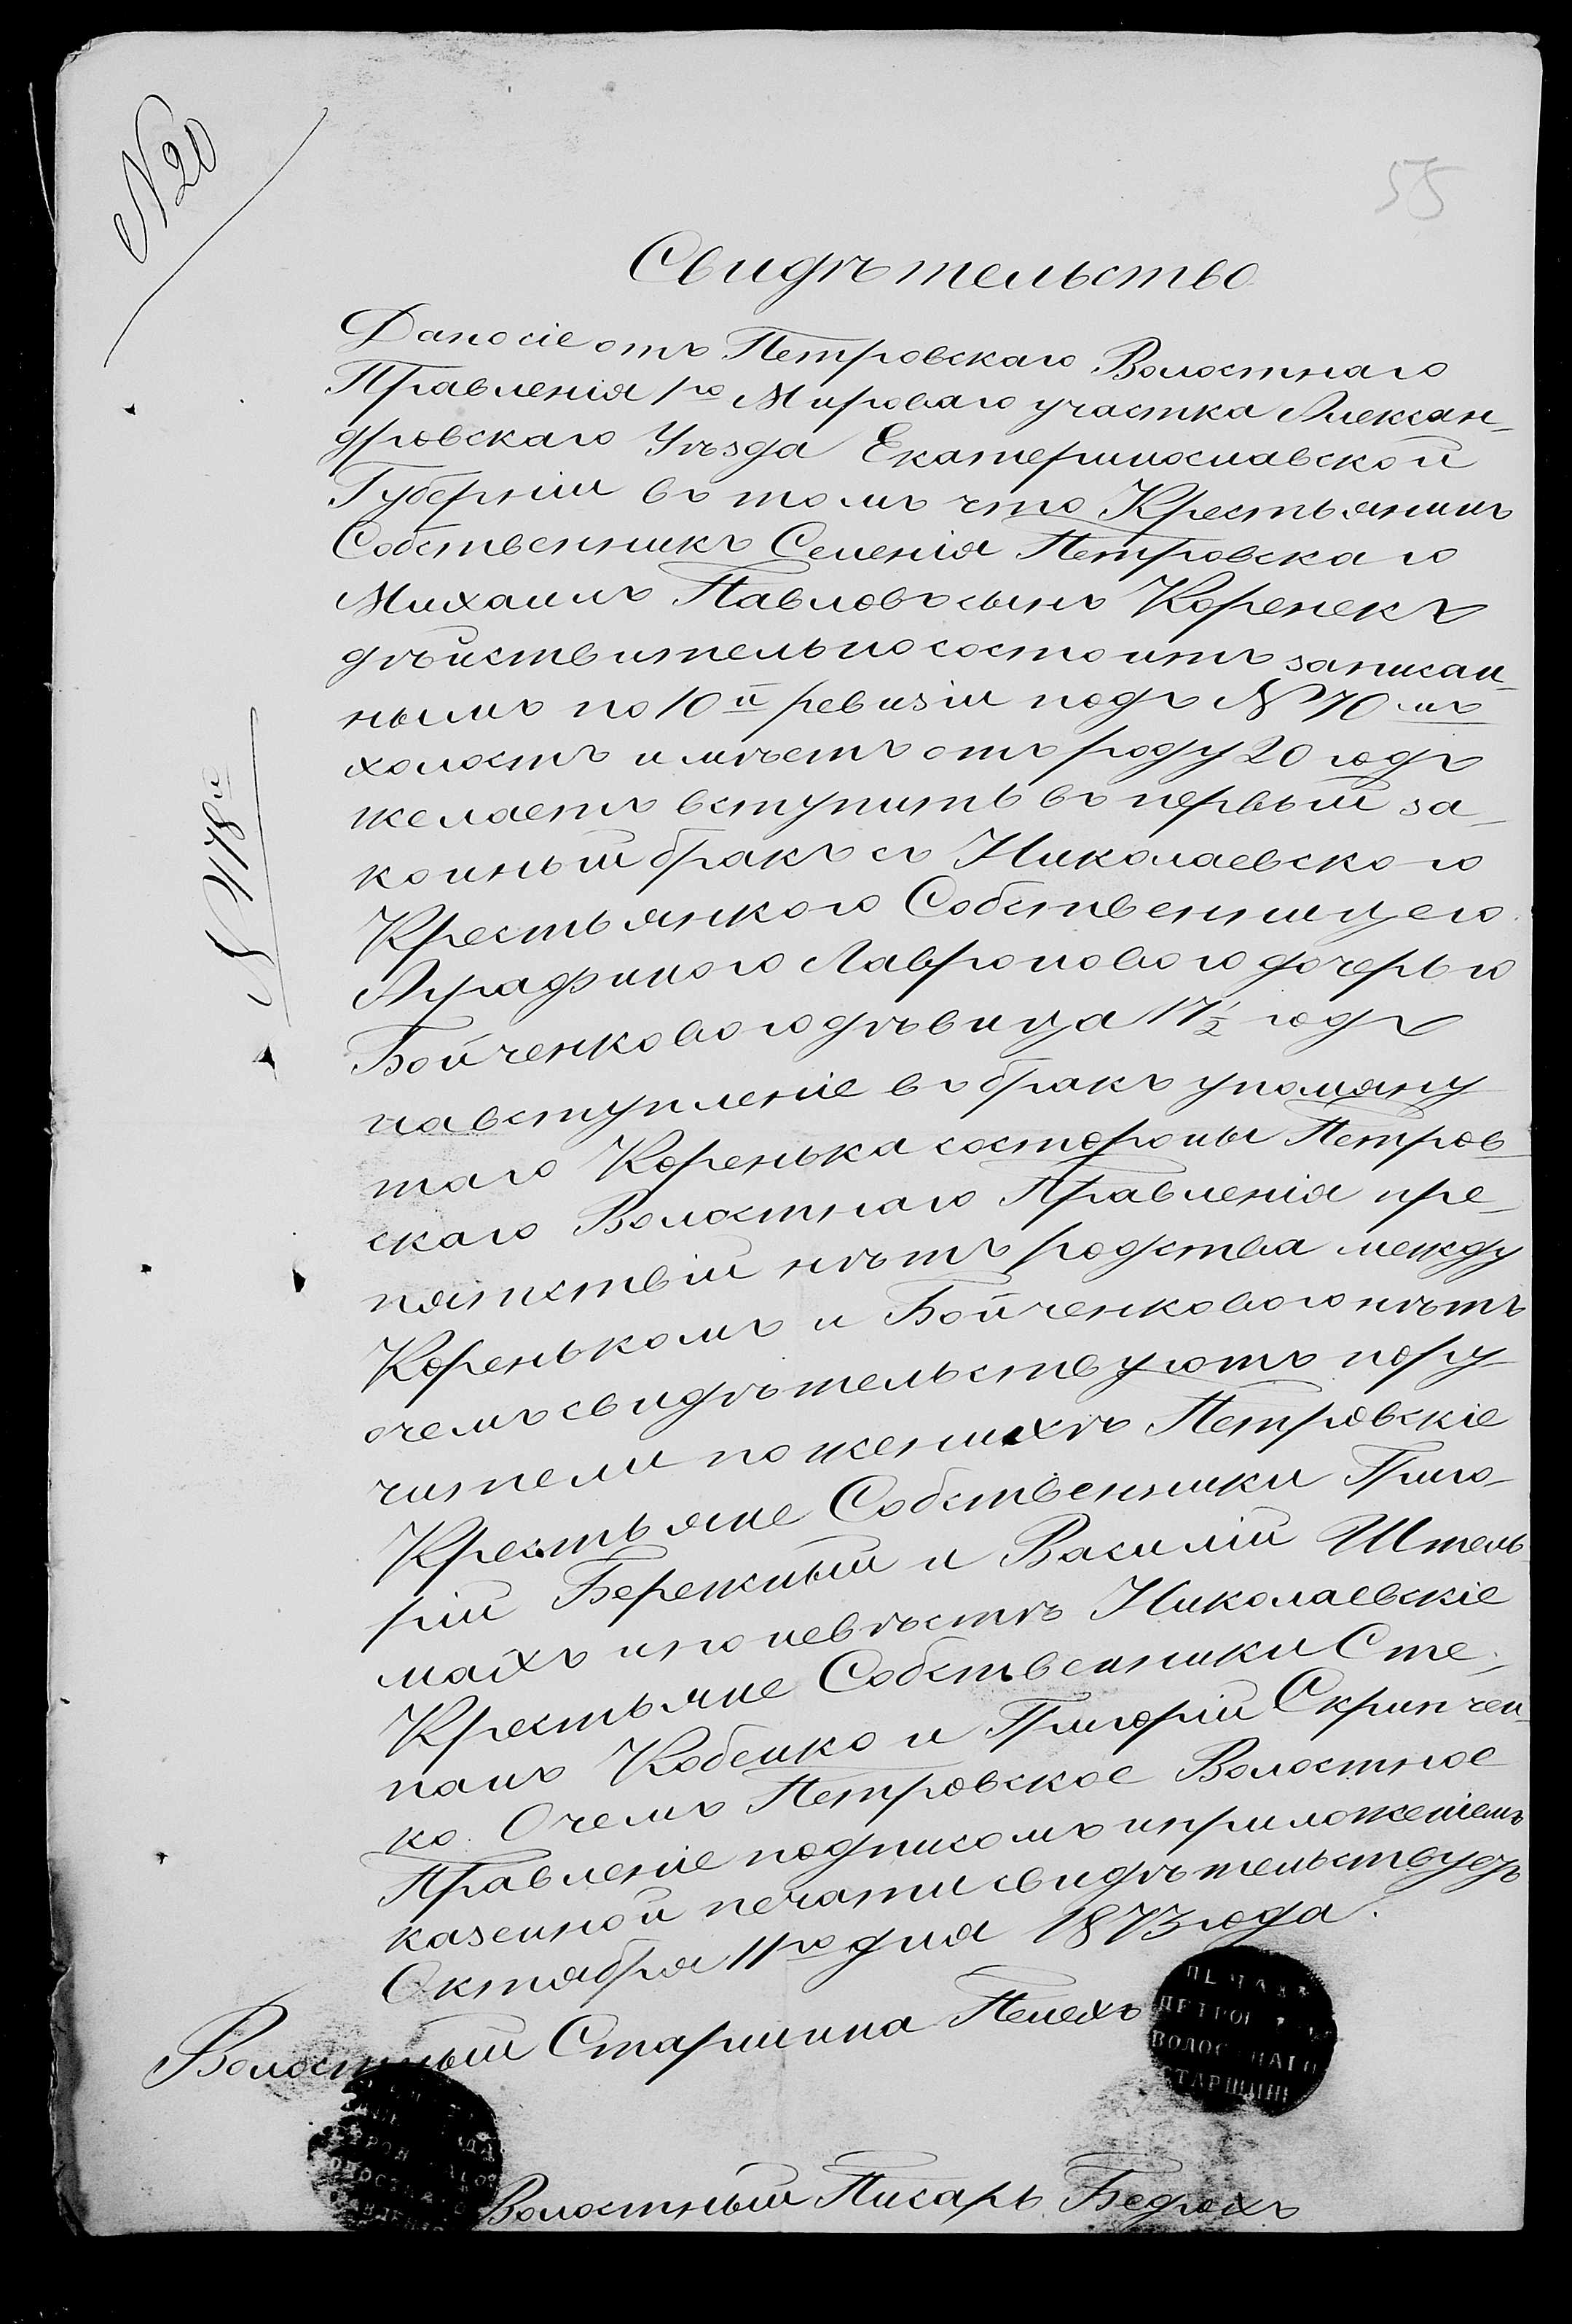 N 20
55
Свидѣтельство
Дано сіе отъ Петровскаго Волостнаго
Правленія 1го Мироваго участка Алексан-
дровскаго Уѣзда Екатеринославской
Губерніи въ томъ что Крестьянинъ
Собственникъ Селенія Петровскаго
Михаилъ Павловъ сынъ Коренекъ
дѣйствительно состоитъ записан-
нымъ по 10й ревизіи подъ № 70мъ
холостъ имѣетъ отъ роду 20 годъ
желаетъ вступить въ первый за-
конный бракъ съ Николаевскою
Крестьянкою Собственницею
Аграфиною Лавроновою дочерью
Бойченковою дѣвица 17½ годъ
на вступленіе въ бракъ упомяну
таго Коренька состороны Петров-
скаго Волостнаго Правленія пре-
пятствій нѣтъ родства между
Коренькомъ и Бойченковою нѣтъ
очемъ свидѣтельствуютъ пору
чители по женихѣ Петровскіе
Крестьяне Собственники Григо-
рій Бережный и Василій Штель
махъ и по невѣстѣ Николаевскіе
Крестьяне Собственники Сте-
панъ Кобенко и Григорій Скрипчен-
ко. Очемъ Петровское Волостное
Правленіе подписомъ и приложеніемъ
казенной печати свидѣтельствуетъ
Октября 11го дня 1873 года.
Волостный Старшина Пелехъ
ПЕЧАТЬ
ПЕТРОВ
ВОЛОСТНАГО
СТАРШИНЫ
Волостный Писарь